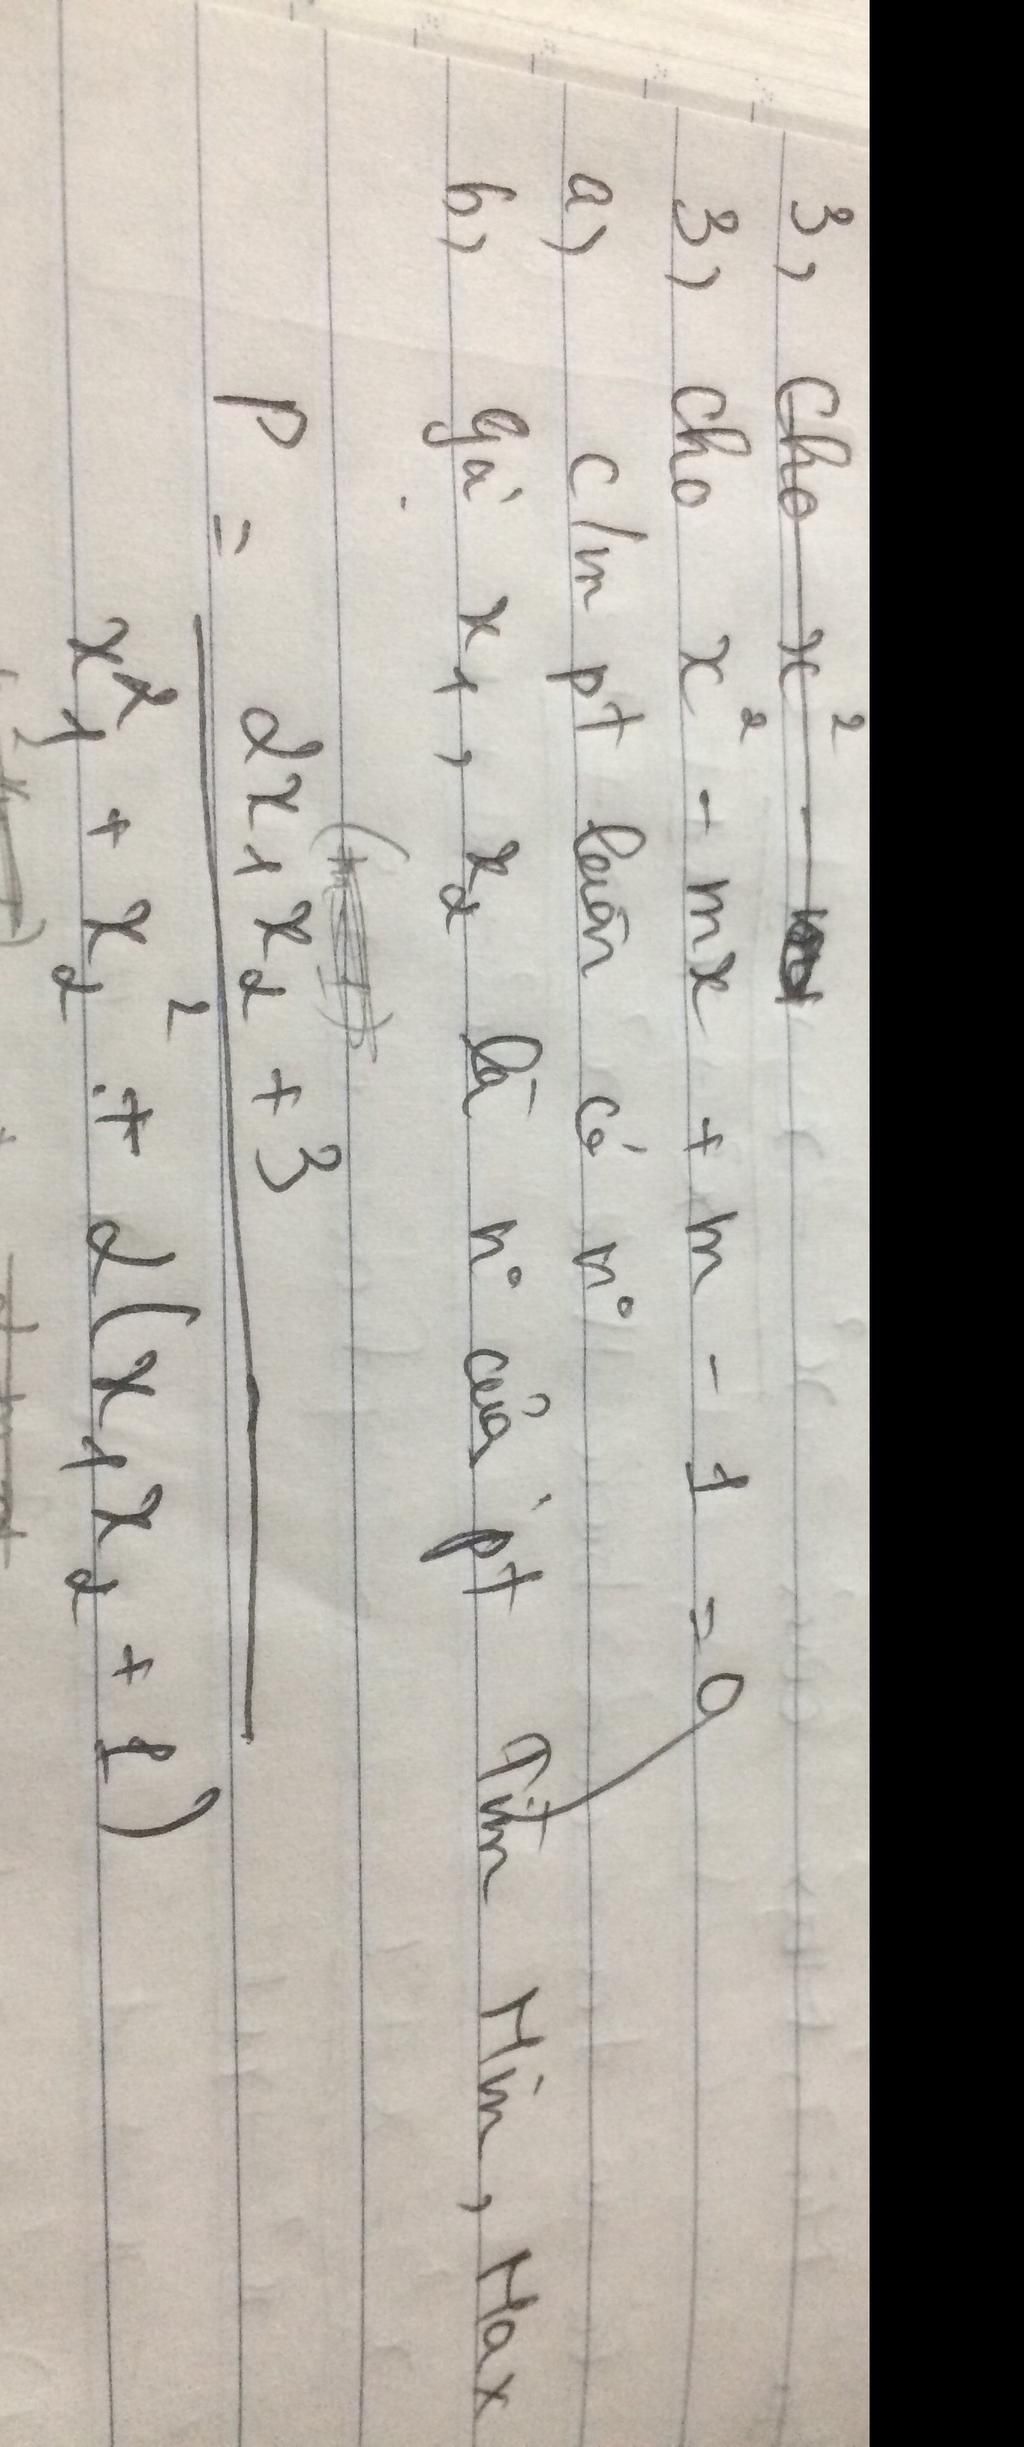 3, Cho x² -
3, cho x² - mx + m - 1 = 0
a) c/m pt luôn có n°
b, gá x₁, x₂ là n° của pt Tìm Min, Max
P = 2x₁x₂ + 3
x₁² + x₂² + 2(x₁x₂ + 1)